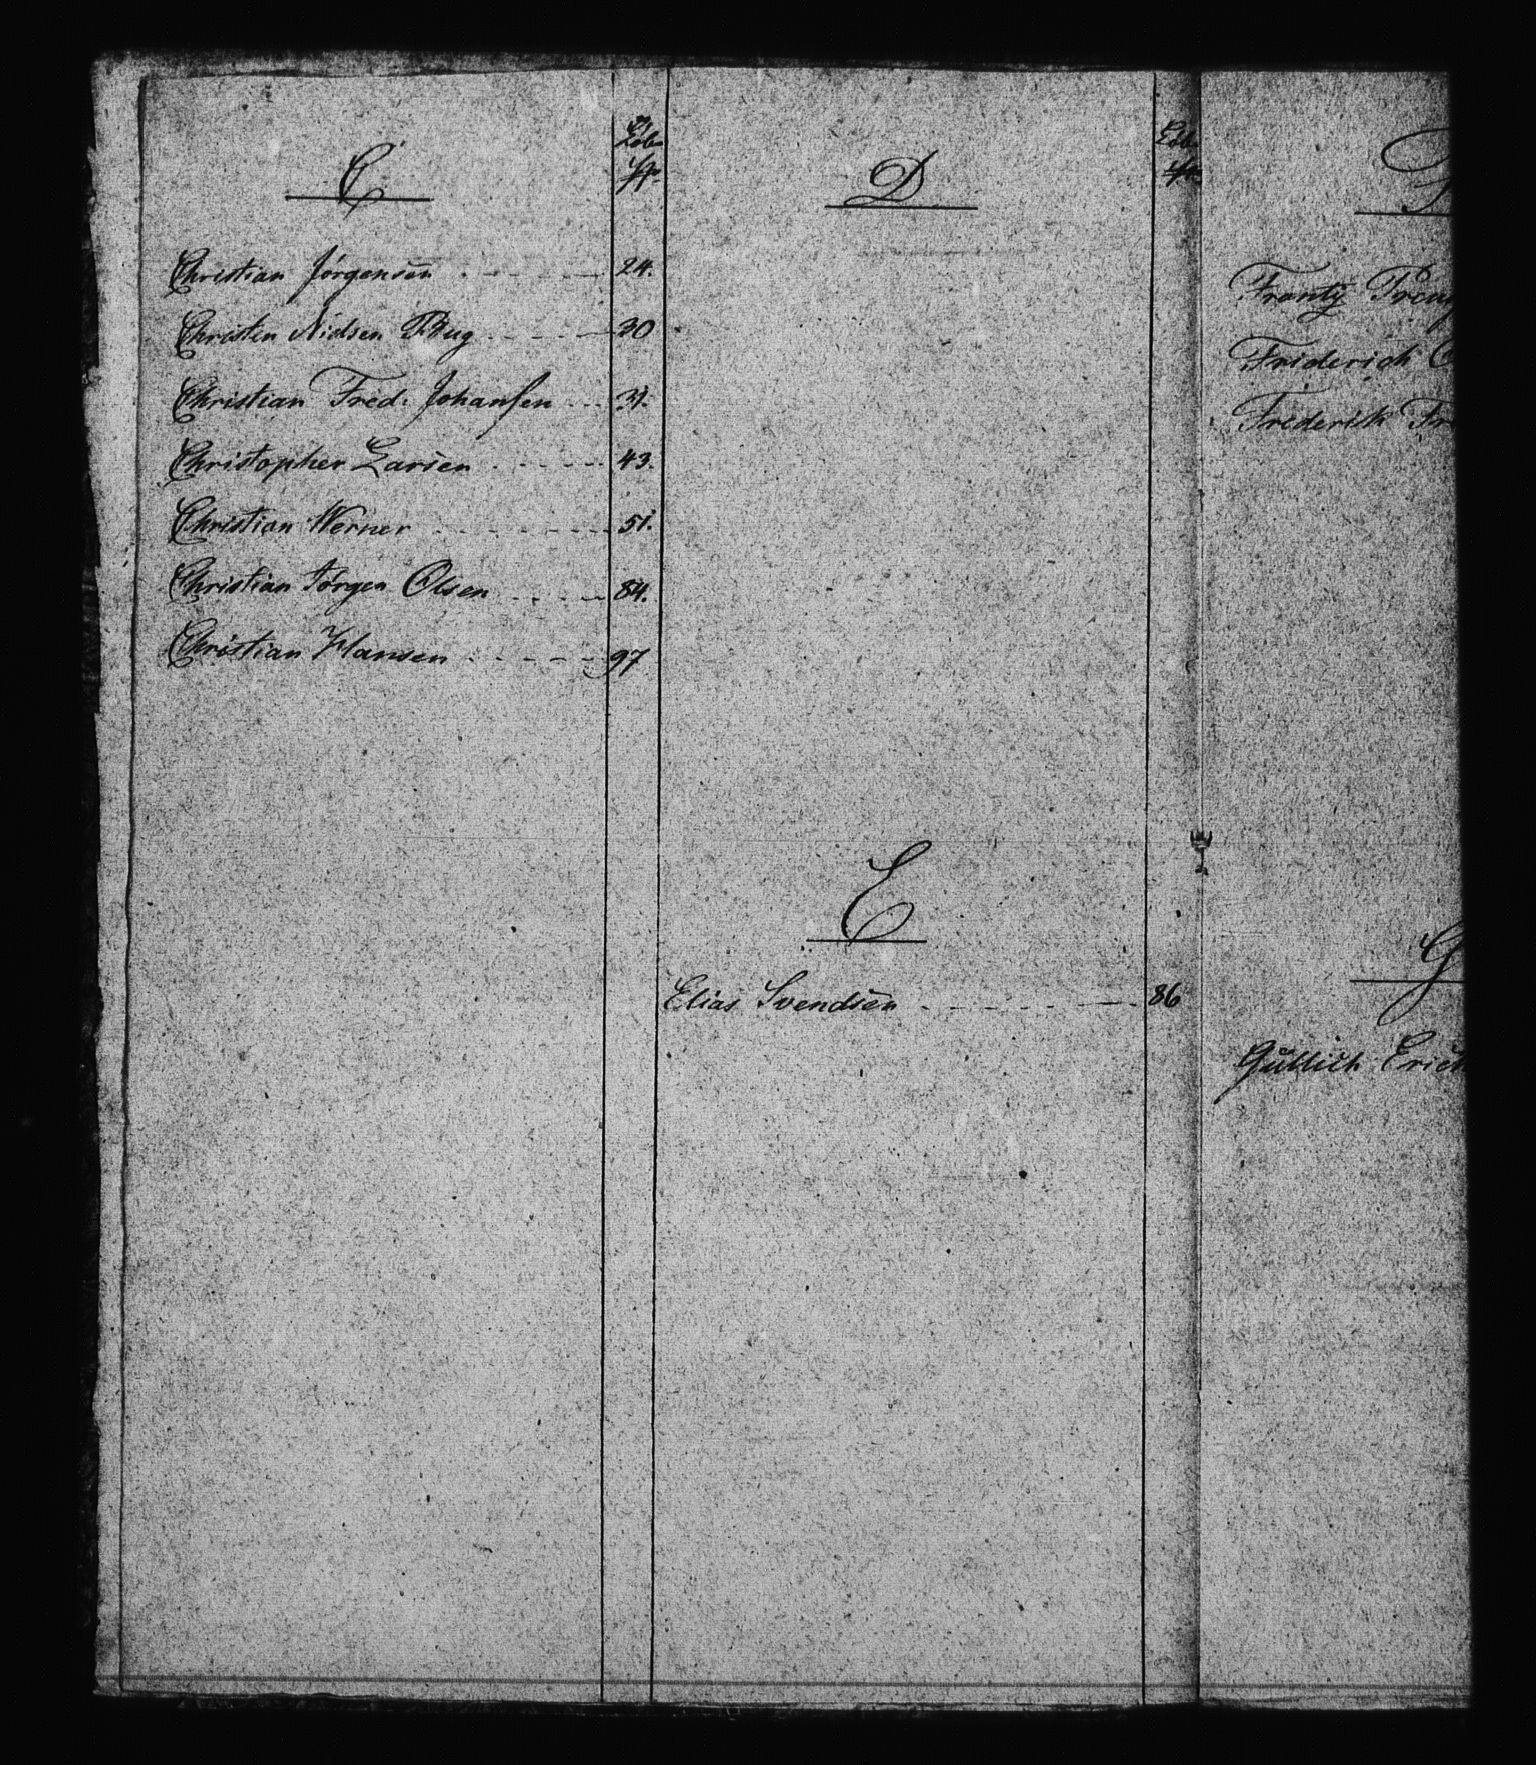 C
Løb
Christian Jørgensen 24.
Christen Nielsen Bug 30
Christian Fred. Johansen 31.
Christopher Larsen 43.
Christian Werner 51.
Christian Jørgen Olsen 84.
Christian Hansen 97
D
Løb
E
Elias Svendsen 86
F
Frantz
Friderich
Frederich Fr
G
Gullich Erich